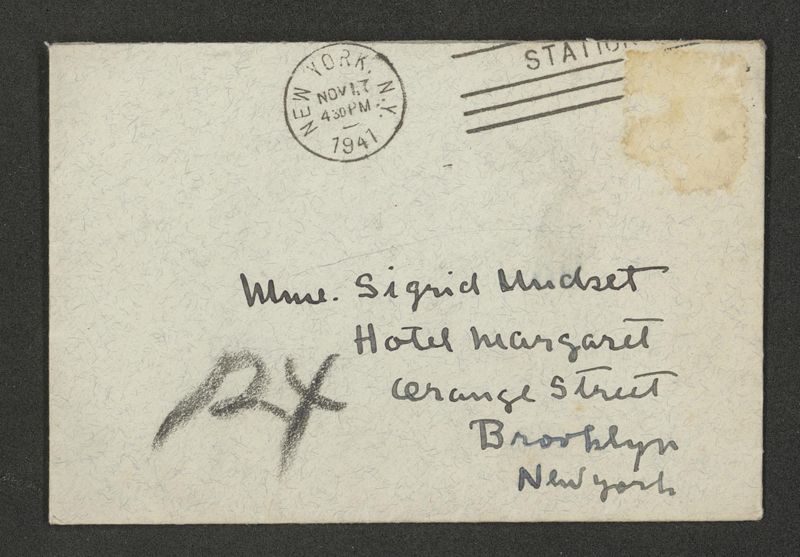 NEW YORK, N.Y.
NOV 17
4 30 PM
1941
STATION
Mme. Sigrid Undset
Hotel Margaret
Orange Street
Brooklyn
New york